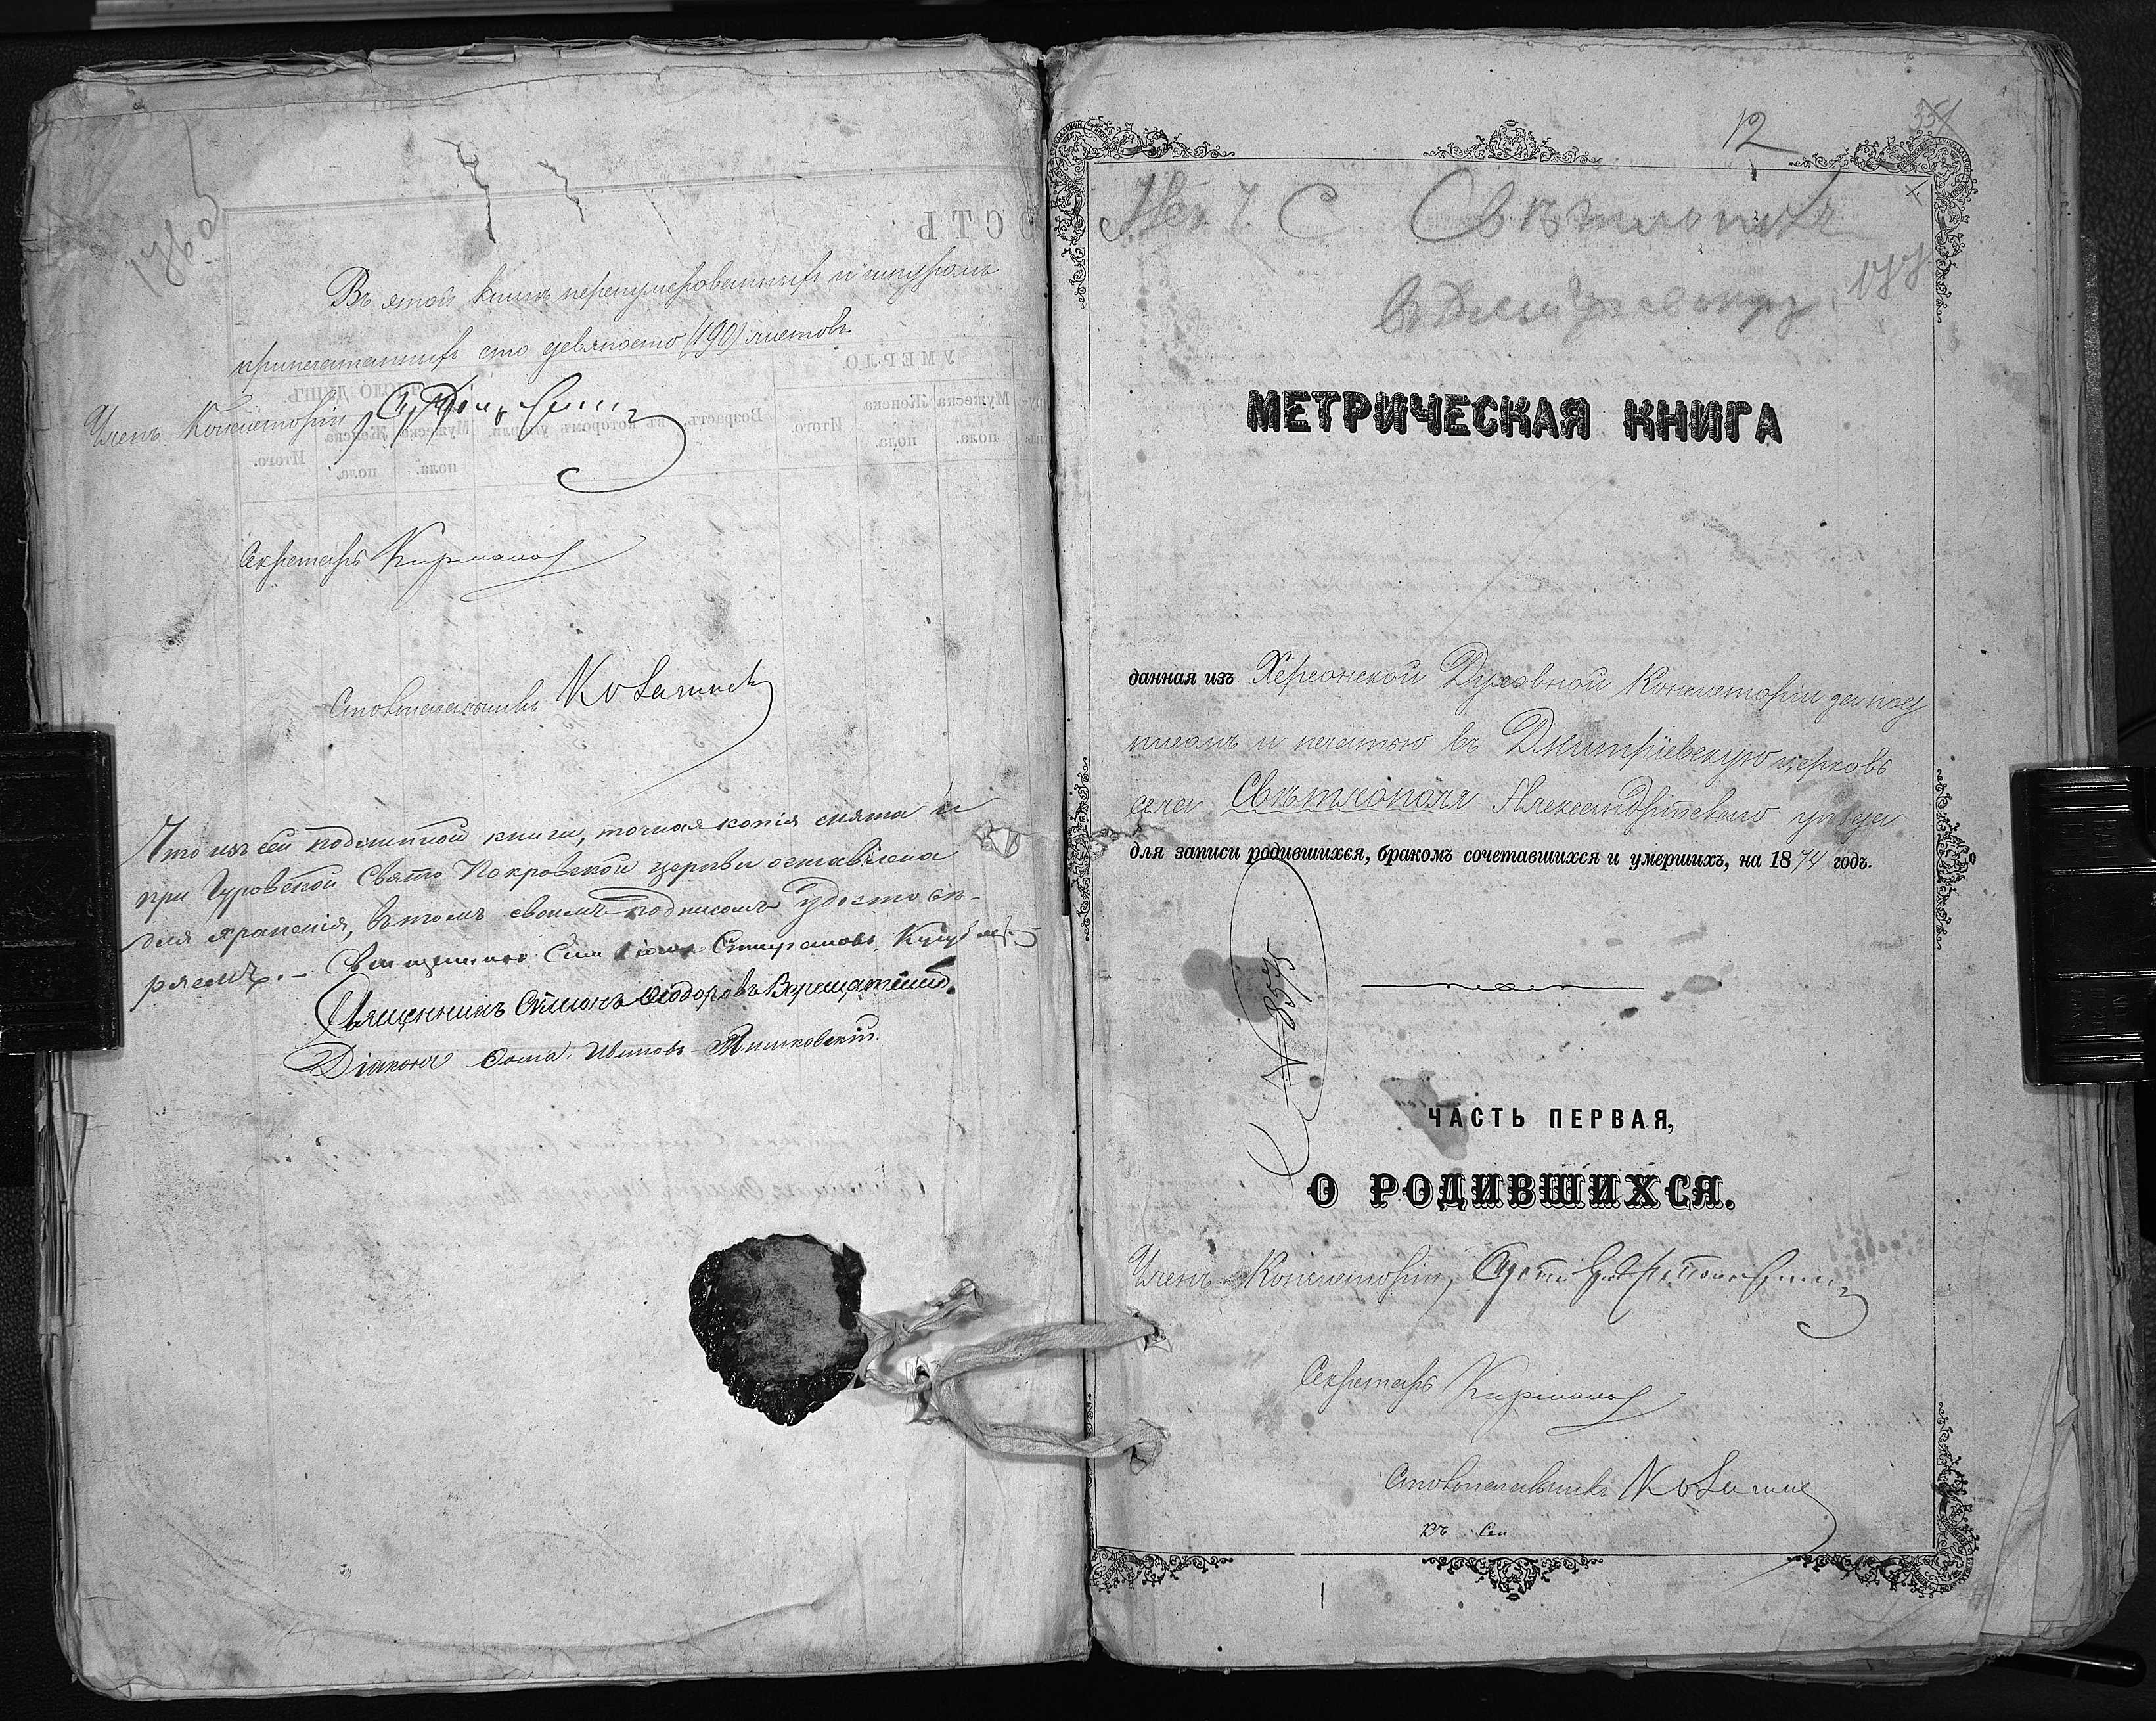 Въ этой книгѣ перенумерованныхъ и шнуромъ
припечатанныхъ сто девяносто (190) листовъ
Членъ Консисторіи
Секретарь
Столоначальникъ
Что изъ сей подлинной книги, точная копія снята и
при Гуровской Свято Покровской церкви оставлена
для храненія, въ томъ своимъ подписомъ удостовѣ-
ряемъ. – Священникъ
Священникъ Симіонъ Ѳеодоровъ
Діаконъ Ѳома Ивановъ
12
МЕТРИЧЕСКАЯ КНИГА
данная изъ Херсонской Духовной Консисторіи за под
писомъ и печатью въ Дмитріевскую церковь
села Свѣтлополя Александрійскаго уѣзда
для записи родившихся, бракомъ сочетавшихся и умершихъ, на 1874 годъ.
№ 8575
ЧАСТЬ ПЕРВАЯ,
О РОДИВШИХСЯ.
Членъ Консисторіи
Секретарь
Столоначальникъ